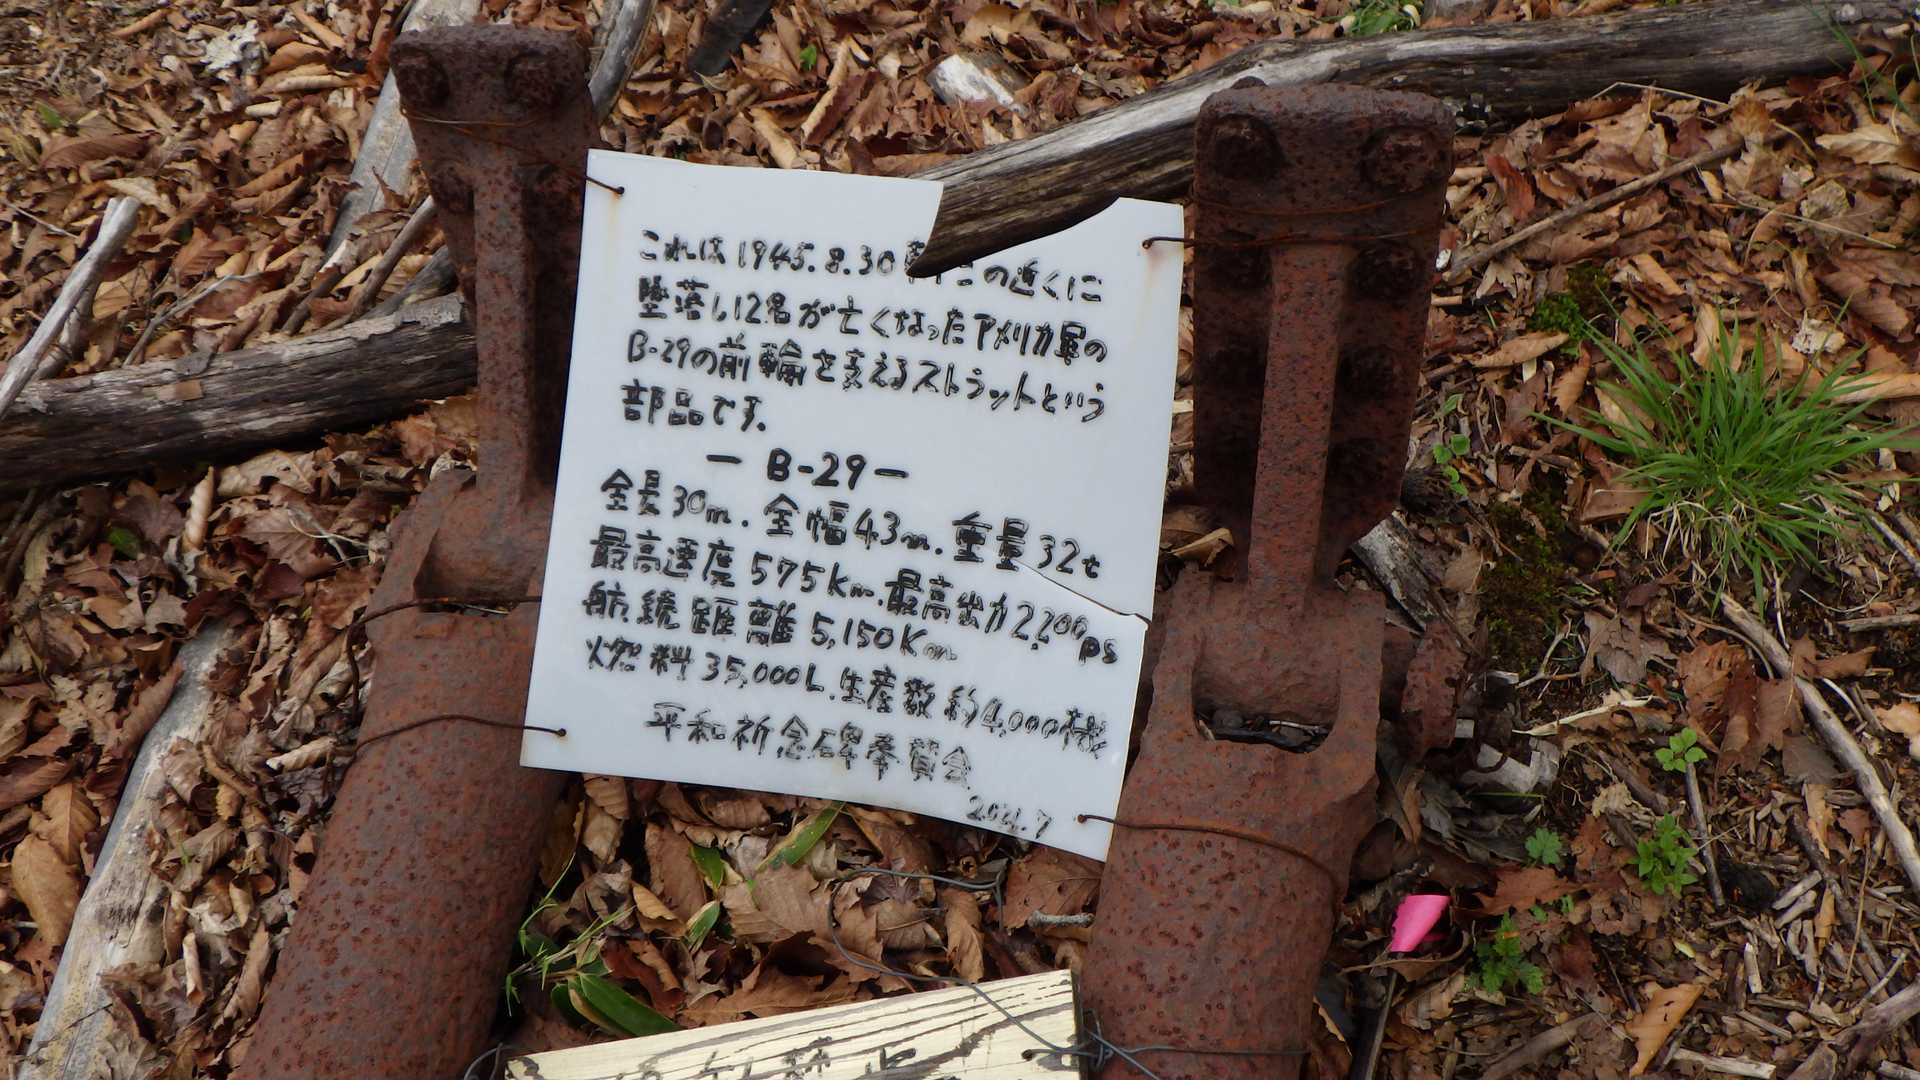 これは1945.8.30 この近くに
墜落し12名が亡くなったアメリカ軍の
B-29の前輪を支えるストラットという
部品です。
— B-29 —
全長30m. 全幅43m. 重量32t
最高速度575Km. 最高出力2,200ps
航続距離5,150Km
燃料35,000L. 生産数約4,000機
平和祈念碑奉賛会